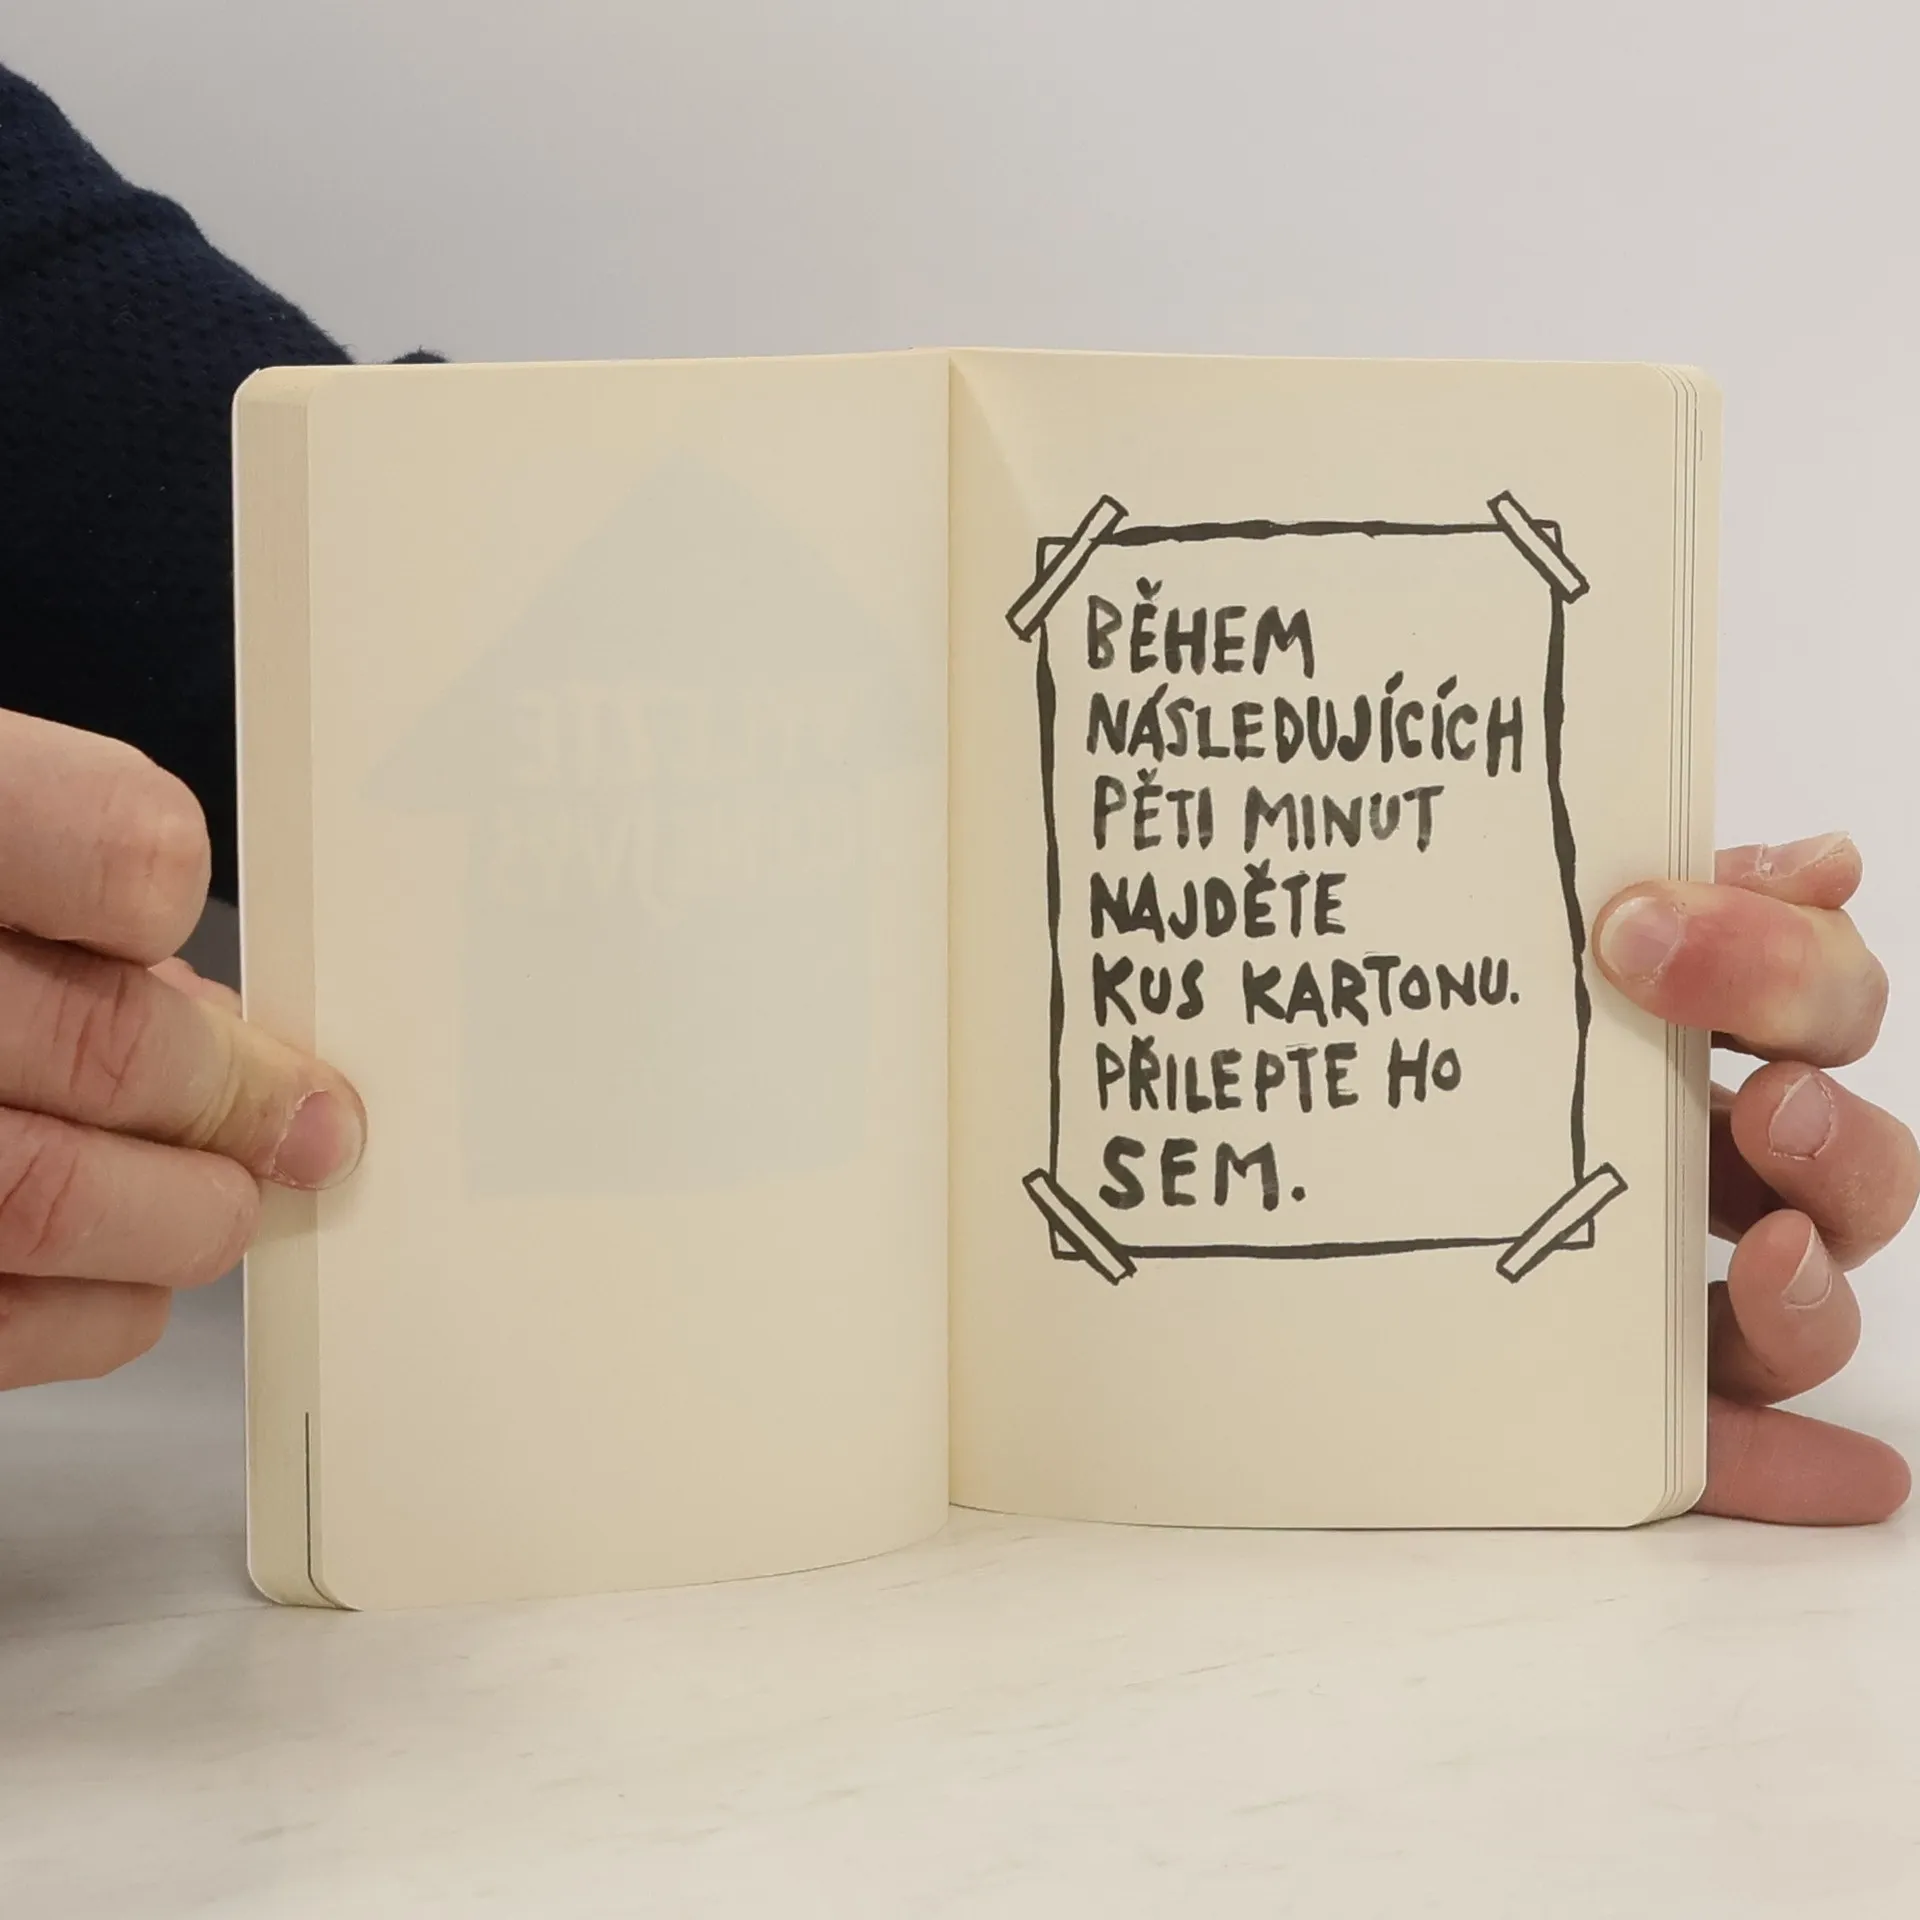 BĚHEM
NÁSLEDUJÍCÍCH
PĚTI MINUT
NAJDĚTE
KUS KARTONU.
PŘILEPTE HO
SEM.